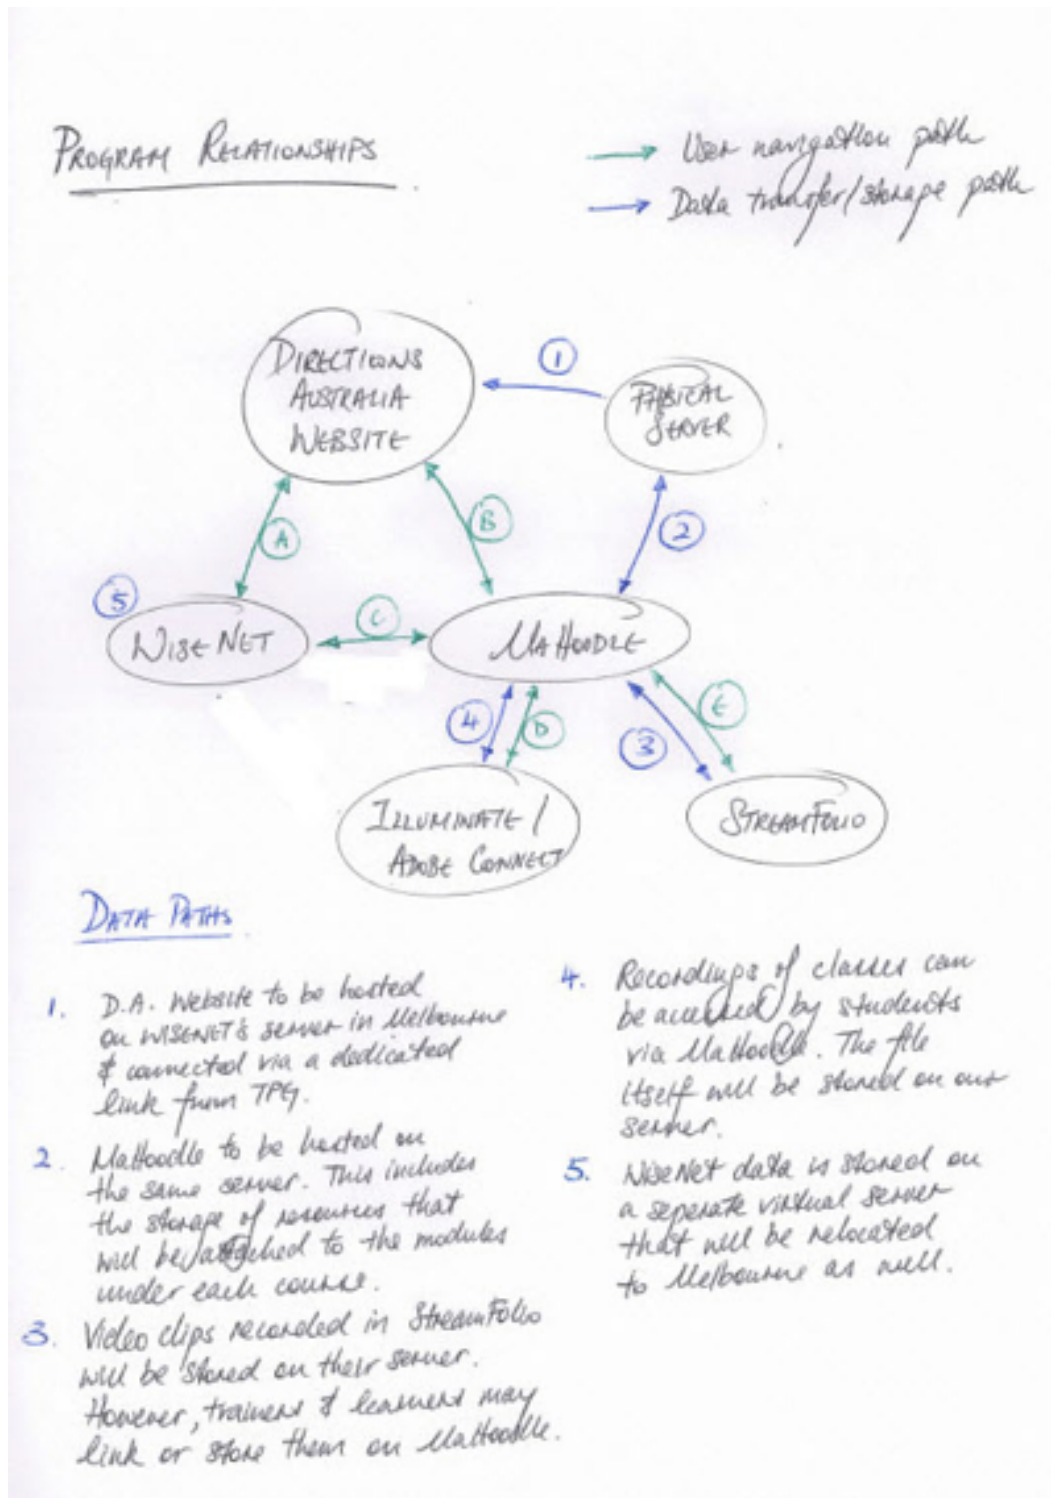 PROGRAM RELATIONSHIPS
User navigation path
Data transfer/storage path
DIRECTIONS
AUSTRALIA
WEBSITE
1
PHYSICAL
SERVER
A
B
2
5
WISENET
C
MAHOODLE
4
D
3
E
ILLUMINATE /
ADOBE CONNECT
STREAMFOLIO
DATA PATHS
1. D.A. Website to be hosted
on WISENET'S server in Melbourne
& connected via a dedicated
link from TPG.
2. MaHoodle to be hosted on
the same server. This includes
the storage of resources that
will be attached to the modules
under each course.
3. Video clips recorded in StreamFolio
will be stored on their server.
However, trainers & learners may
link or store them on MaHoodle.
4. Recordings of classes can
be accessed by students
via MaHoodle. The file
itself will be stored on our
server.
5. WiseNet data is stored on
a seperate virtual server
that will be relocated
to Melbourne as well.